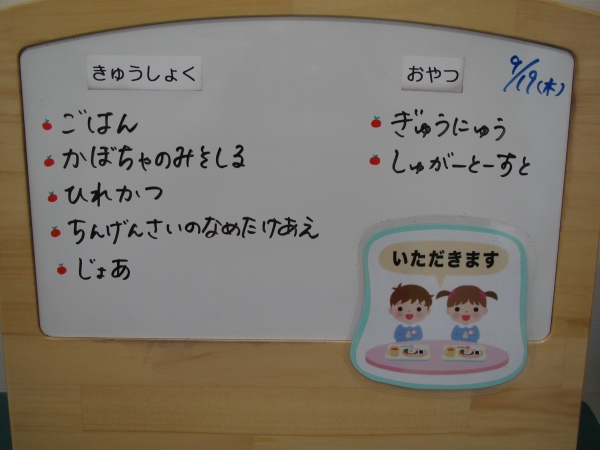 きゅうしょく
ごはん
かぼちゃのみそしる
ひれかつ
ちんげんさいのなめたけあえ
じょあ
おやつ
9/19(木)
ぎゅうにゅう
しゅがーとーすと
いただきます